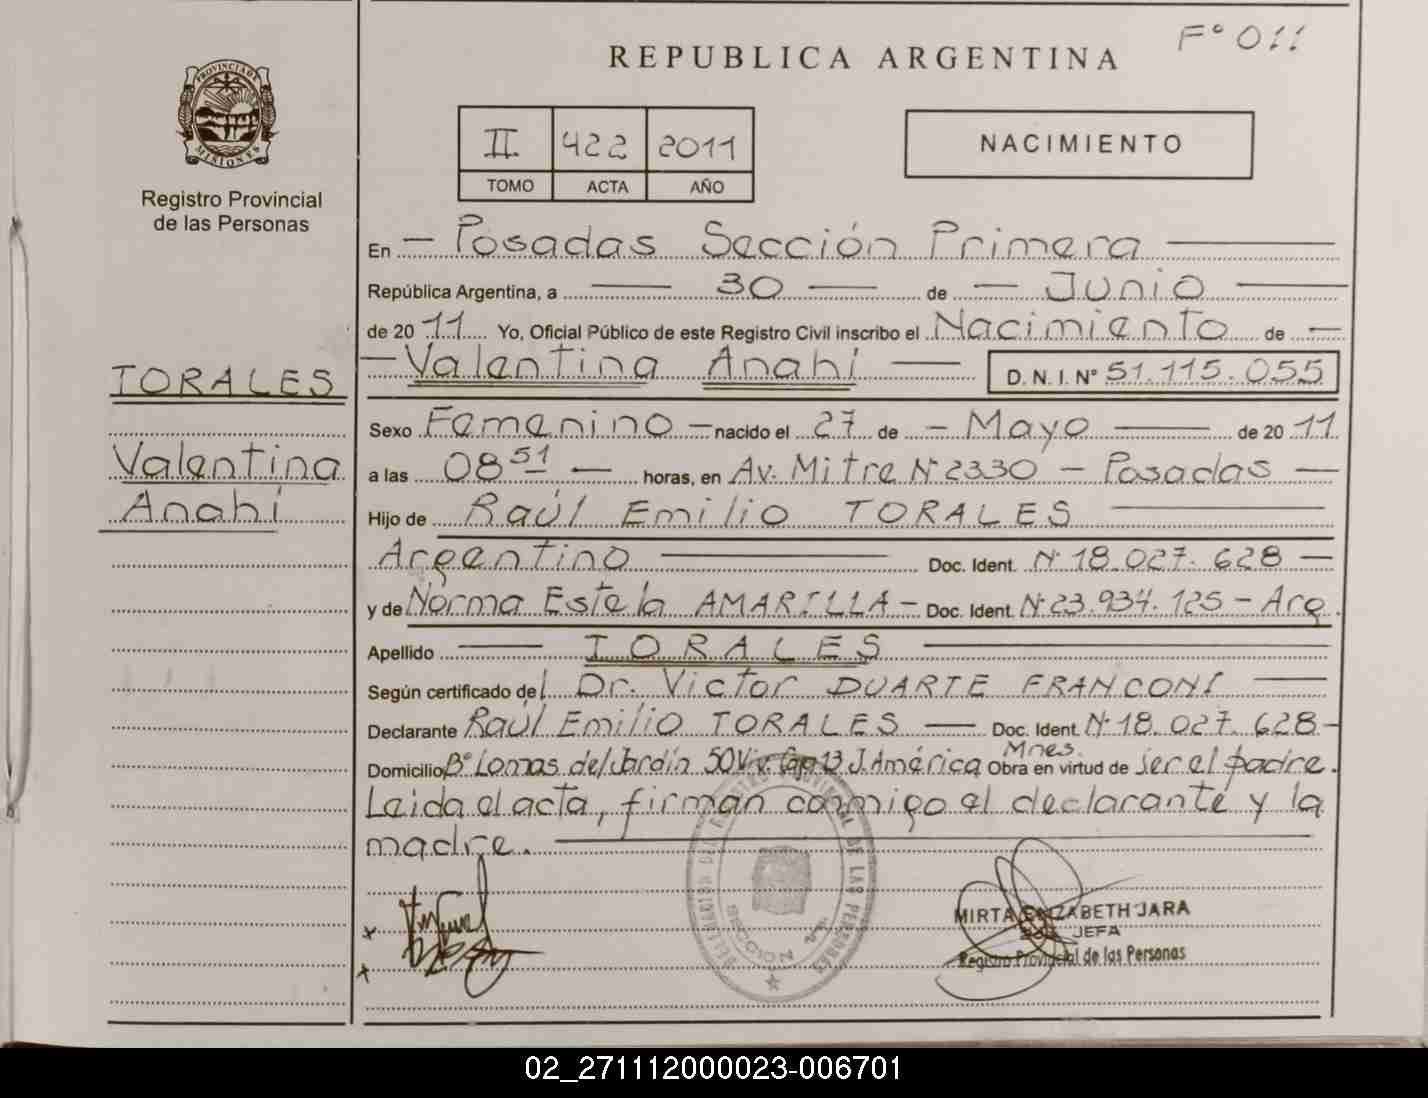 F° 011
REPUBLICA ARGENTINA
PROVINCIA DE MISIONES
Registro Provincial
de las Personas
II 422 2011
TOMO ACTA AÑO
NACIMIENTO
En — Posadas Sección Primera —
República Argentina, a — 30 — de — Junio —
de 2011 Yo, Oficial Público de este Registro Civil inscribo el Nacimiento de —
— Valentina Anahí — D.N.I. N° 51.115.055
TORALES
Valentina
Anahí
Sexo Femenino — nacido el 27 de — Mayo — de 2011
a las 08 51 — horas, en Av. Mitre N° 2330 — Posadas —
Hijo de Raúl Emilio TORALES —
Argentino — Doc. Ident. N° 18.027.628 —
y de Norma Estela AMARILLA — Doc. Ident. N° 23.934.125 — Arg.
Apellido — TORALES —
Según certificado del Dr. Victor DUARTE FRANCONI —
Declarante Raúl Emilio TORALES — Doc. Ident. N° 18.027.628 —
Domicilio B° Lomas del Jardín 50 Viv. Cap 13 J. América Mnes. Obra en virtud de ser el padre.
Leida el acta, firman conmigo el declarante y la
madre. —
DELEGACION DEL REGISTRO PROVINCIAL DE LAS PERSONAS
SECCION 1ra.
MIRTA ELIZABETH JARA
JEFA
Registro Provincial de las Personas
02_271112000023-006701